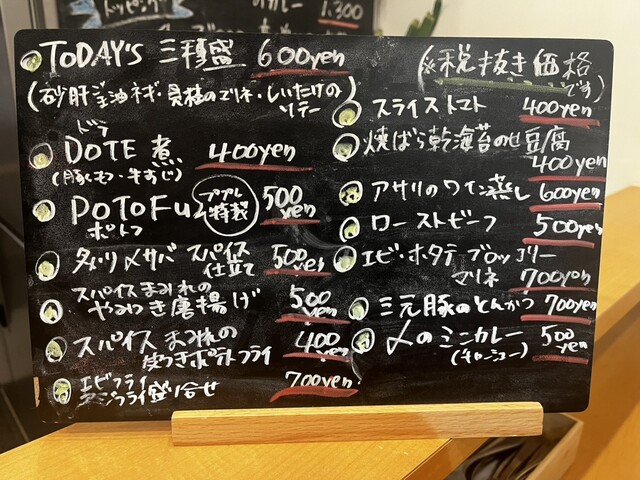 トッピング
カレー 1,300
TODAY'S 三種盛 600yen
(※税抜き価格です)
(砂肝ネギ・のマリネ・しいたけのソテー)
ドテ
DOTE煮 400yen
(豚モツ・牛すじ)
POTOFU ププル特製 500yen
ポトフ
〆サバ スパイス仕立て 500yen
スパイスまみれの
やみつき唐揚げ 500yen
スパイスまみれの
皮つきポテトフライ 400yen
エビフライ
アジフライ盛り合せ 700yen
スライストマト 400yen
焼ばら乾海苔のせ豆腐
400yen
アサリのワイン蒸し 600yen
ローストビーフ 500yen
エビ・ホタテ ブロッコリー
マリネ 700yen
三元豚のとんかつ 700yen
〆のミニカレー 500yen
(チャーシュー)